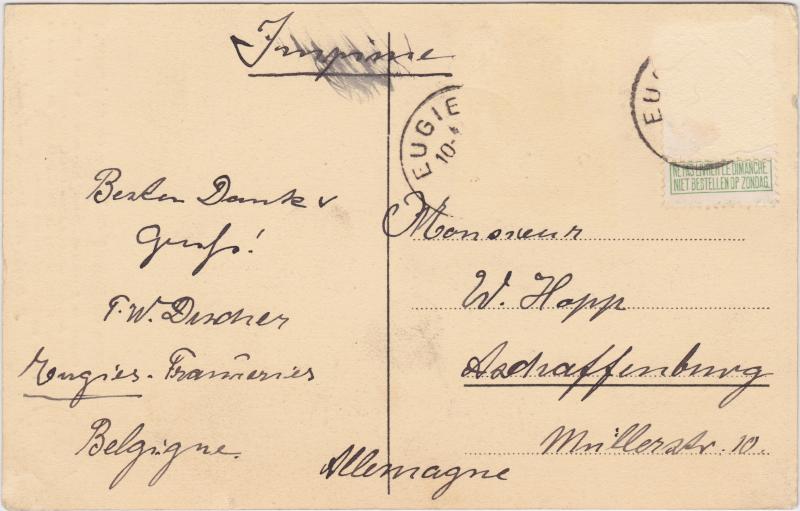 Imprimé
EUGIE
10-
EUG
NE PAS LIVRER LE DIMANCHE.
NIET BESTELLEN OP ZONDAG.
Besten Dank u
Gruß!
F. W. Discher
Eugies - Frameries
Belgique.
Monsieur
W. Hopp
Aschaffenburg
Müllerstr. 10.
Allemagne